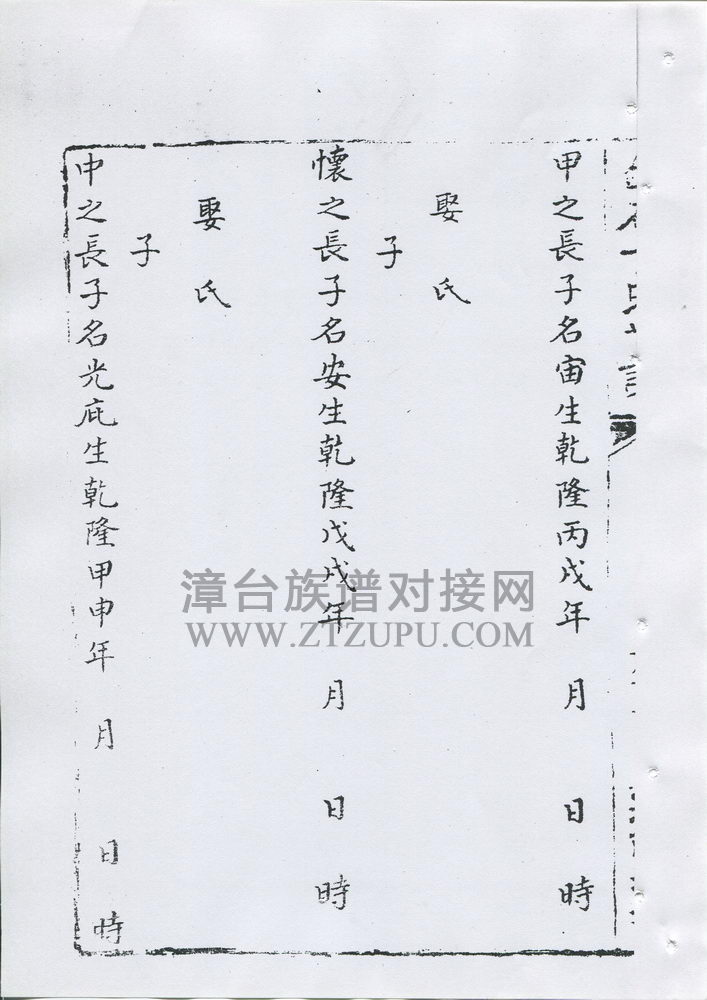 甲之長子名宙生乾隆丙戌年 月 日 時
娶 氏
子
懷之長子名安生乾隆戊戌年 月 日 時
娶 氏
子
申之長子名光庇生乾隆甲申年 月 日 時
漳台族谱对接网
WWW.ZTZUPU.COM